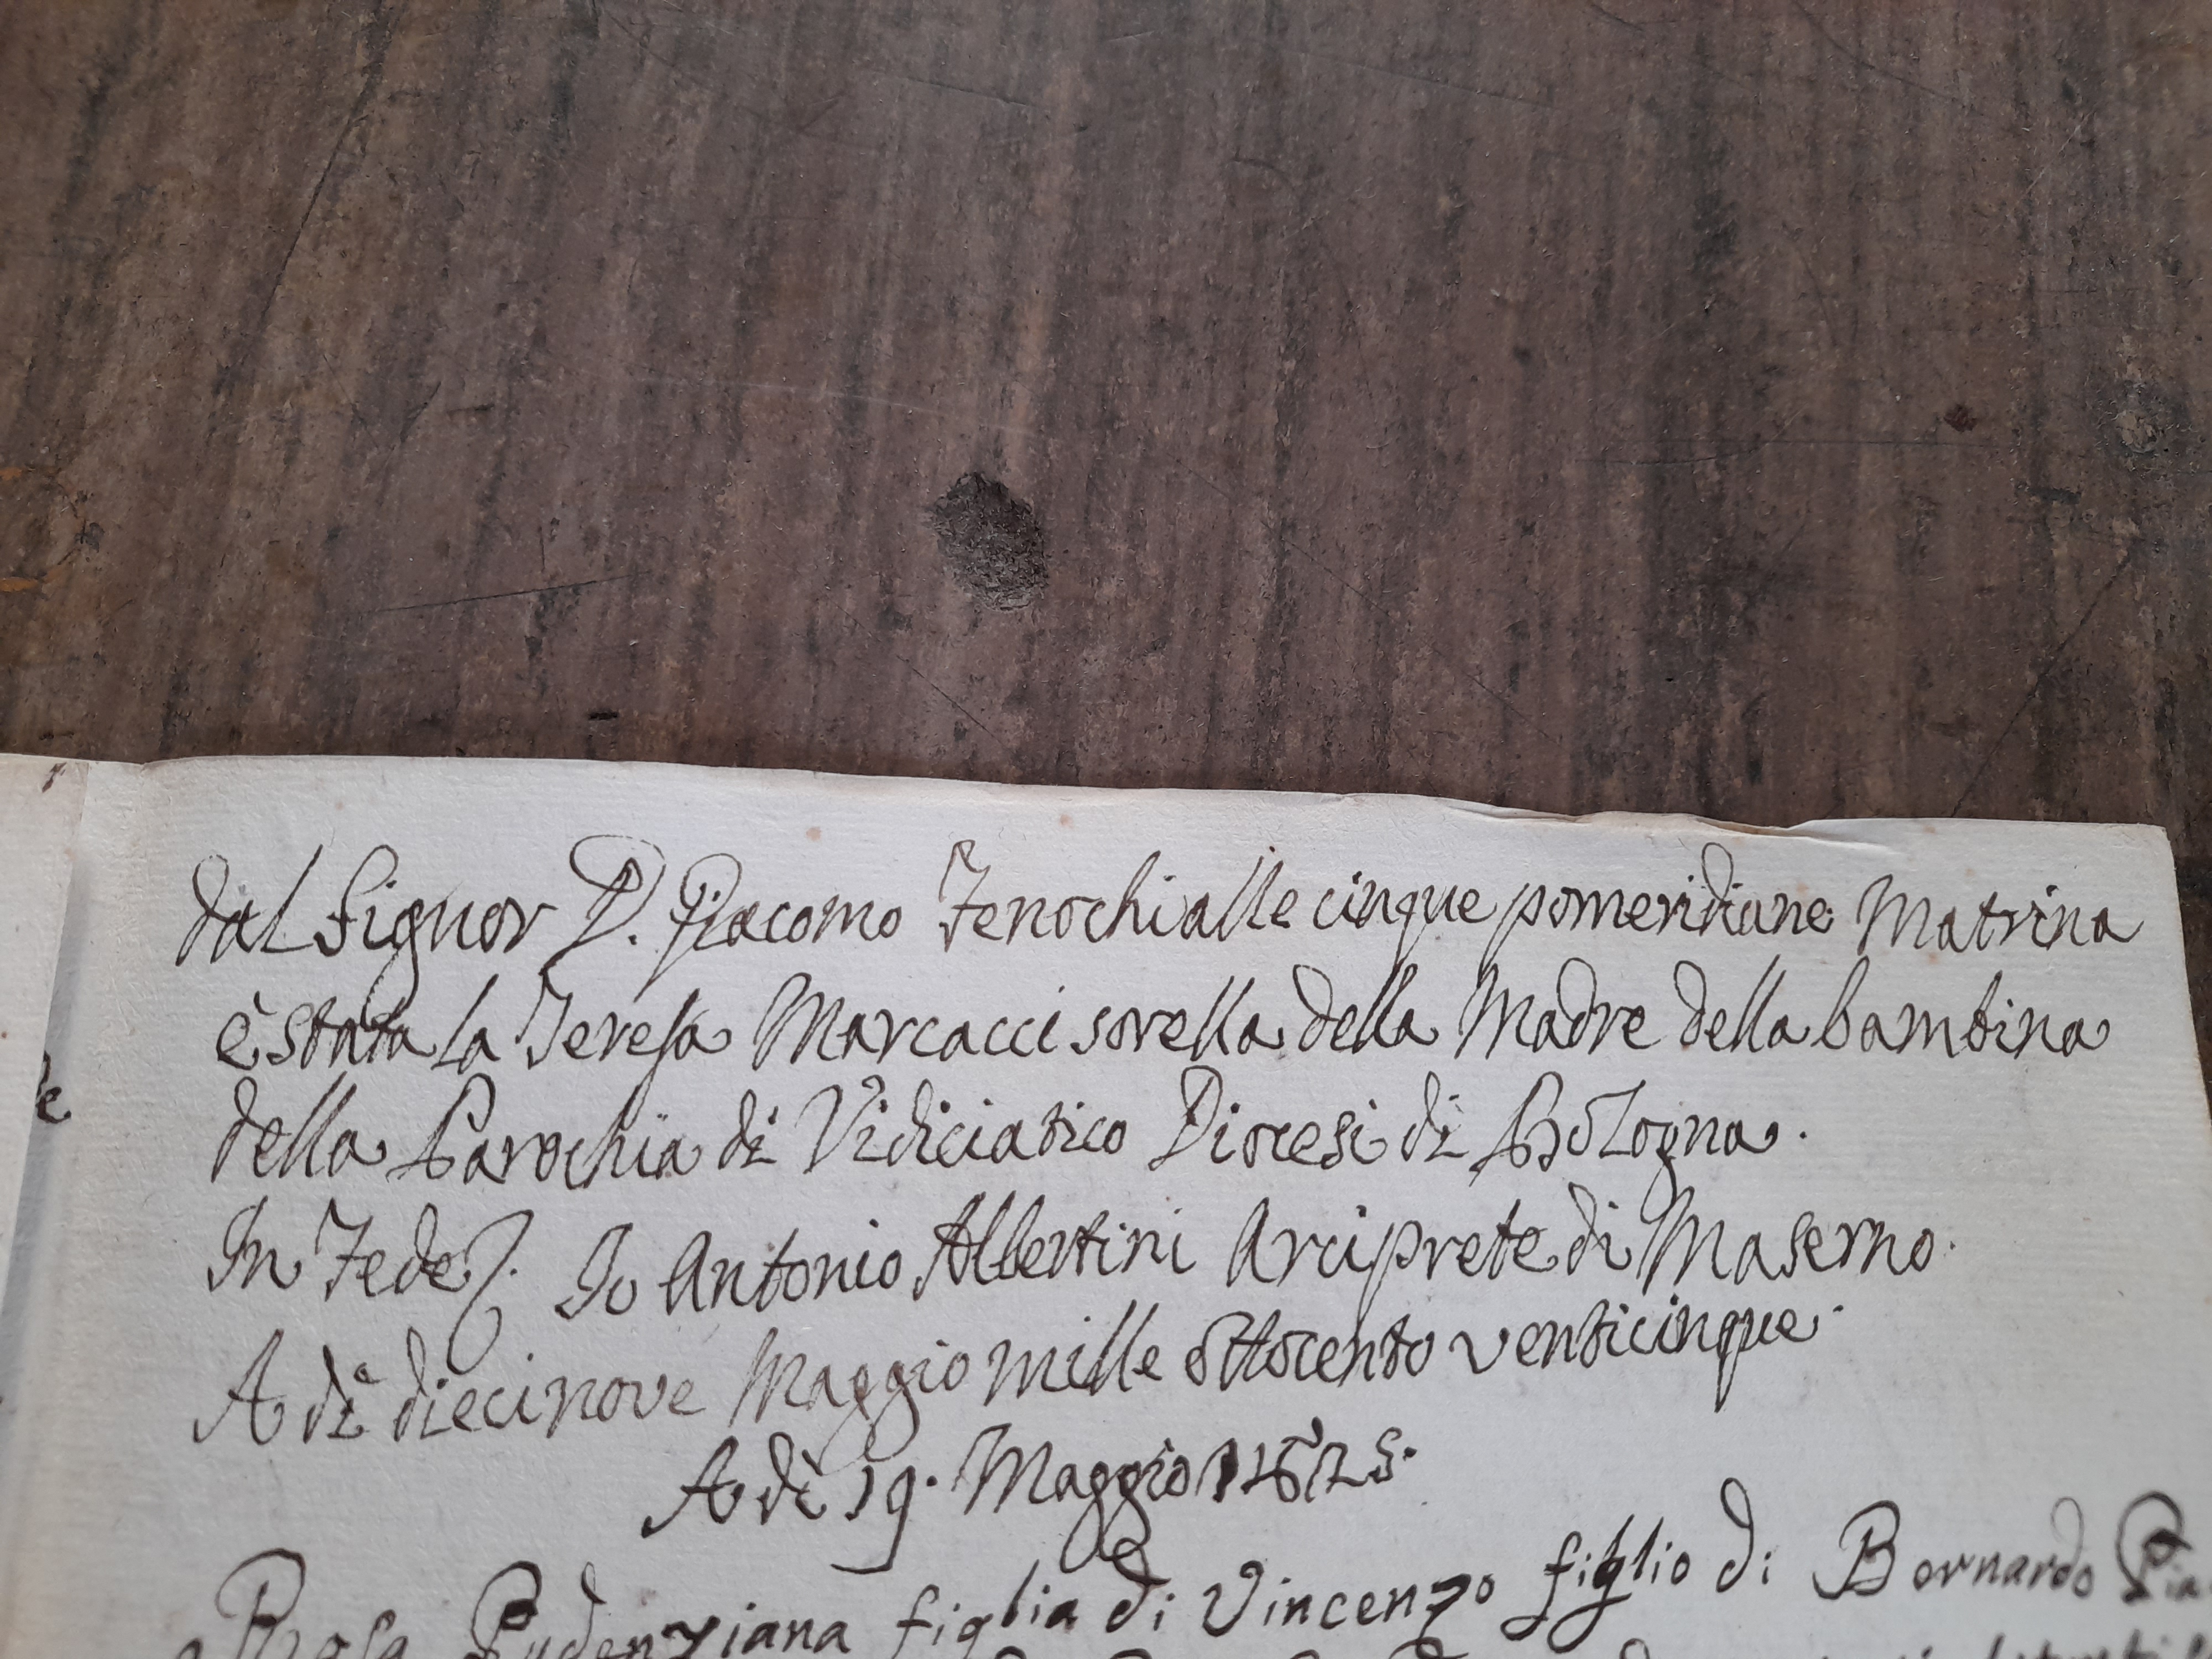 dal Signor D. Giacomo Fenochi alle cinque pomeridiane Matrina
è stata la Teresa Marcacci sorella della Madre della bambina
della Parochia di Vidiciatico Diocesi di Bologna.
In Fede. Io Antonio Albertini Arciprete di Maserno.
A di diecinove Maggio mille ottocento venticinque.
A di 19. Maggio 1825.
Rosa Pudenziana figlia di Vincenzo figlio di Bernardo